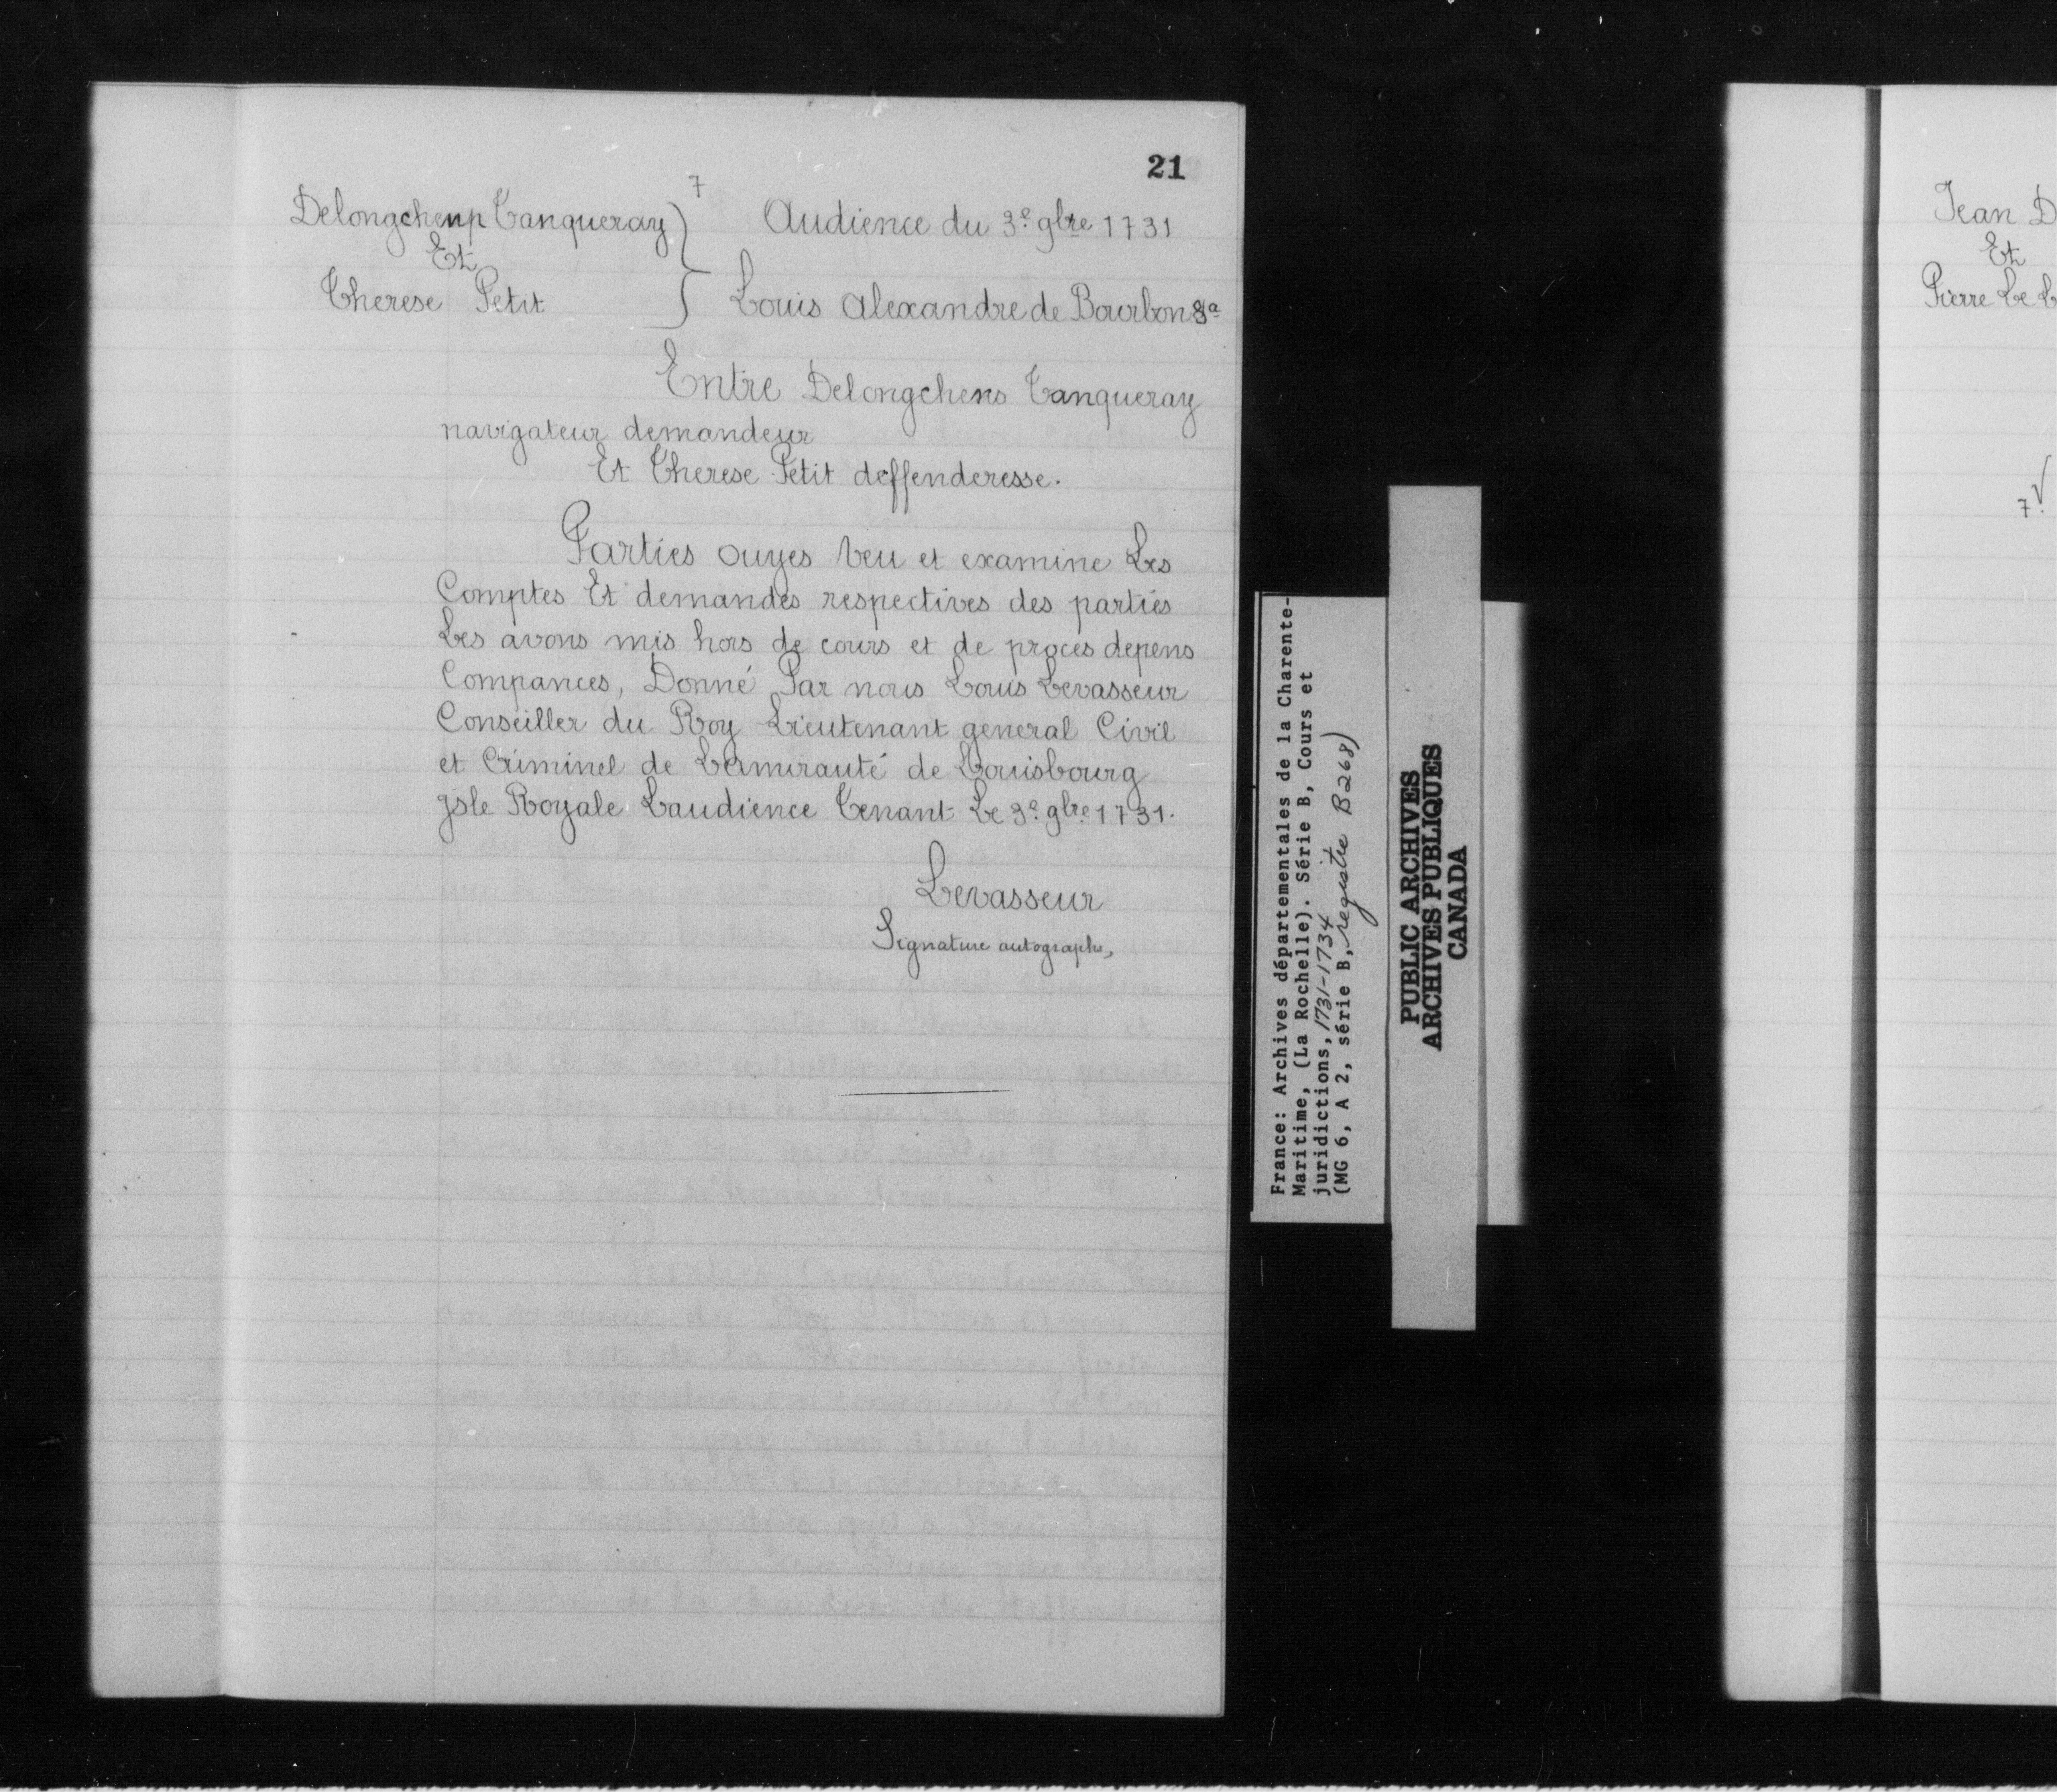 21
7
Delongchenp Tanqueray
Et
Therese Petit
Audience du 3e. 9bre 1731
Louis Alexandre de Bourbon &a
Entre Delongchens Tanqueray
navigateur demandeur
Et Therese Petit deffenderesse.
Parties ouyes Veu et examine Les
Comptes Et demandes respectives des parties
Les avons mis hors de cours et de proces depens
Compances, Donné Par nous Louis Levasseur
Conseiller du Roy Lieutenant general Civil
et Criminel de Lamirauté de Louisbourg
Jsle Royale Laudience Tenant Le 3e. 9bre 1731.
Levasseur
Signature autographe,
France: Archives départementales de la Charente-
Maritime, (La Rochelle). Série B, Cours et
juridictions, 1731-1734
(MG 6, A 2, série B, registre B268)
PUBLIC ARCHIVES
ARCHIVES PUBLIQUES
CANADA
Jean D
Et
Pierre Le L
7.